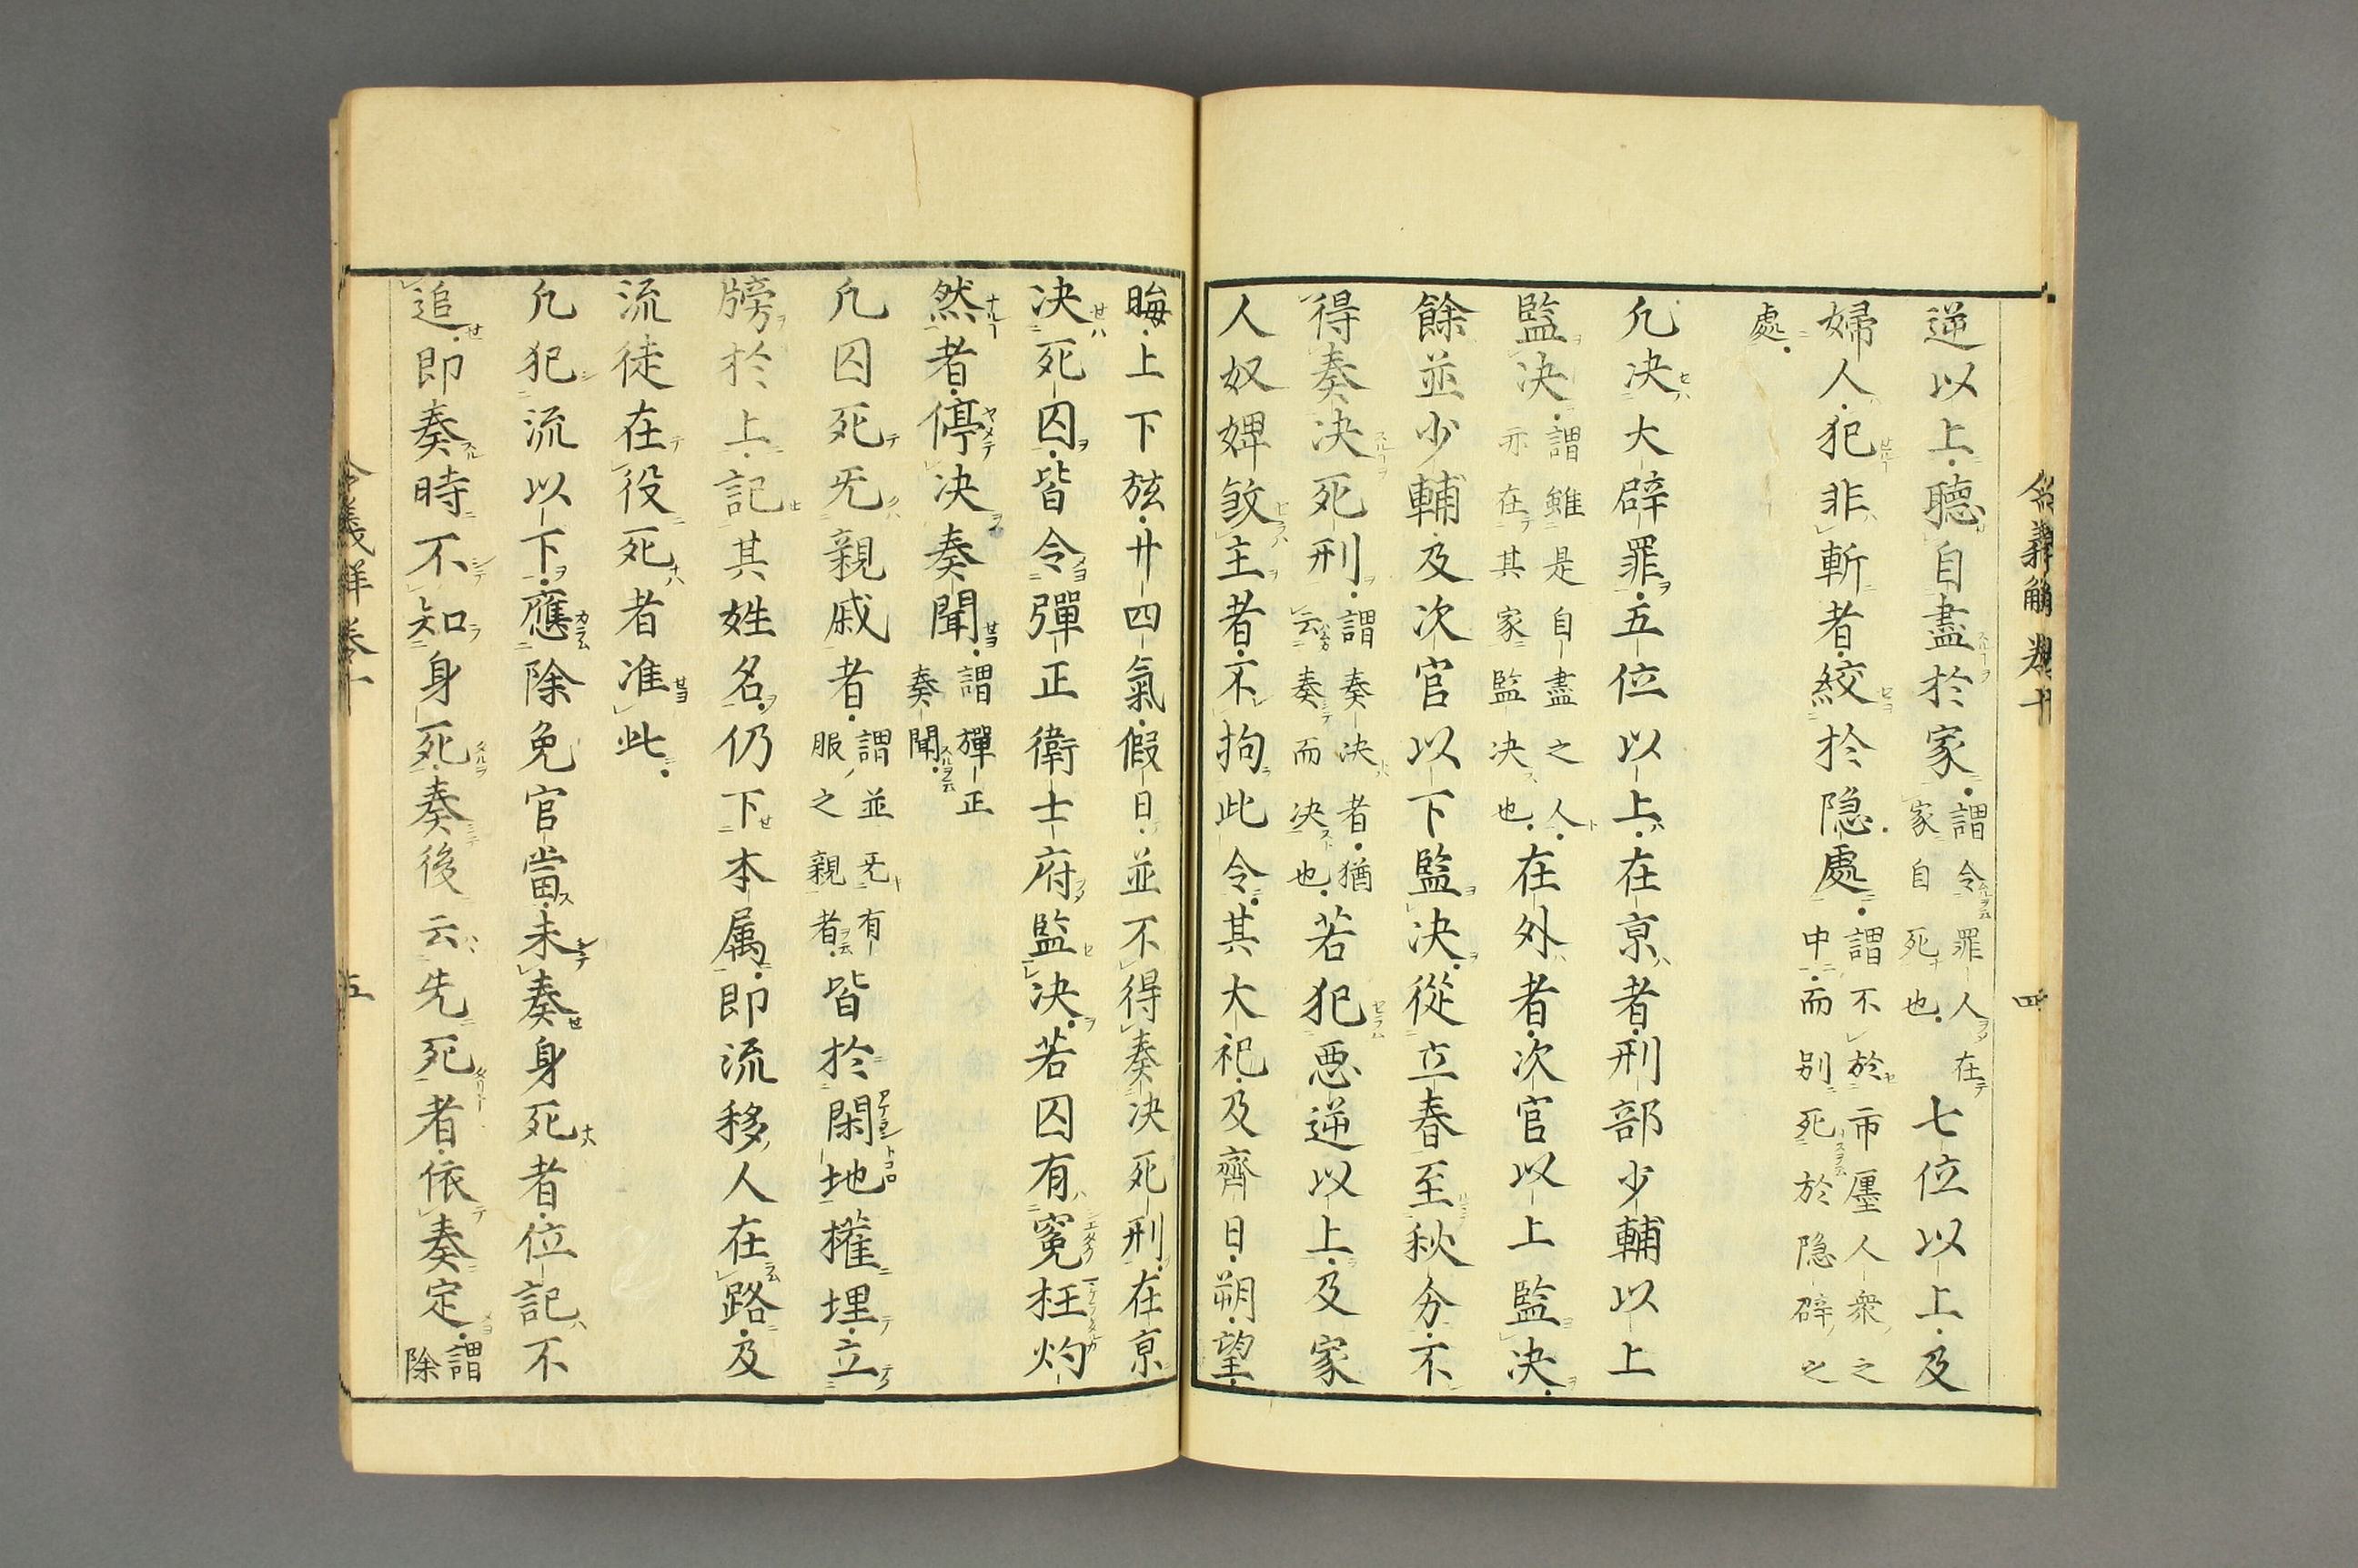 逆以上聽自盡於家謂令罪人在家自死也七位以上及
婦人犯非斬者絞於隠處謂不於市廛人衆之中而别死於隠僻之
處
凢决大辟罪五位以上在京者刑部少輔以上
監决謂雖是自盡之人亦在其家監决也在外者次官以上監决
餘並少輔及次官以下監决從立春至秋分不
得奏决死刑謂奏决者猶云奏而决也若犯悪逆以上及家
人奴婢敓主者不拘此令其大祀及齊日朔望
晦上下弦廿四氣假日並不得奏决死刑在京
决死囚皆令彈正衛士府監决若囚有寃枉灼
然者停决奏聞謂彈正奏聞
凢囚死旡親戚者謂並旡有服之親者皆於閑地權埋立
牓於上記其姓名仍下本属即流移人在路及
流徒在役死者准此
凢犯流以下應除免官當未奏身死者位記不
追即奏時不知身死奏後云先死者依奏定謂除
令義解 卷十
四
五